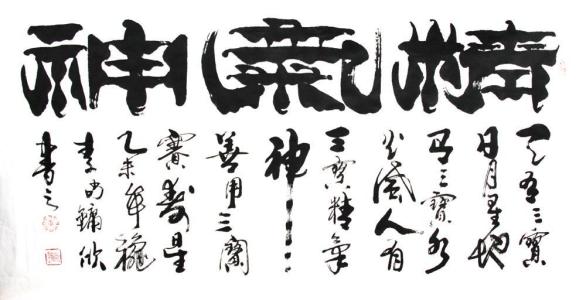 精氣神
天有三寶
日月星地
有三寶水
火風人有
三寶精氣
神
善用三寶
賽壽星
乙未年龝
李 鏞欣
書之